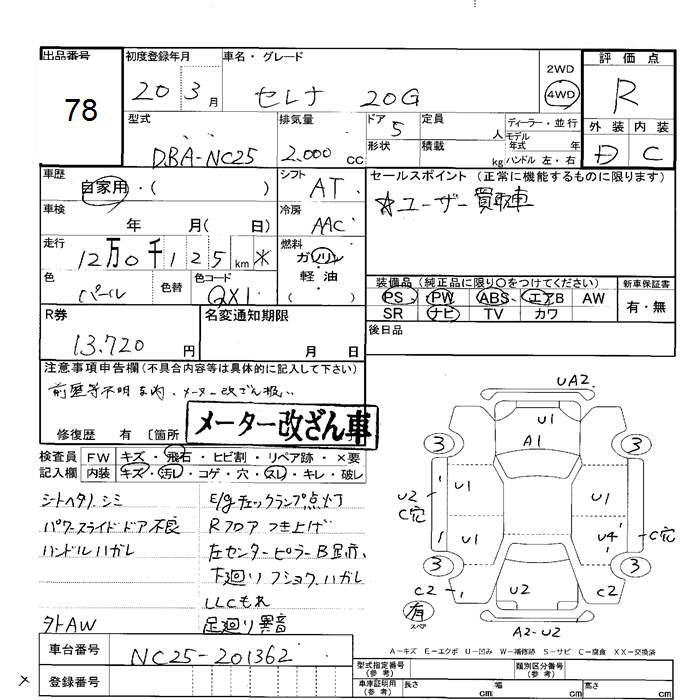 出品番号
78
初度登録年月
20 3 月
車名・グレード
セレナ 20G
2WD
4WD
評価点
R
外装 内装
D C
型式
DBA-NC25
排気量
2.000 cc
ドア
5
形状
定員
人
積載
kg
ディーラー・並行
モデル
年式 年
ハンドル 左・右
車歴
自家用・( )
シフト
AT
車検
年 月( 日)
冷房
AAC
走行
12万0千125km ＊
燃料
ガソリン
・
軽油
( )
色
パール
色替
色コード
QX1
セールスポイント (正常に機能するものに限ります)
☆ユーザー買取車
装備品 (純正品に限り〇をつけてください)
PS PW ABS エアB AW
SR ナビ TV カワ
新車保証書
有・無
後日品
R券
13.720 円
名変通知期限
月 日
注意事項申告欄 (不具合内容等は具体的に記入して下さい)
前歴等不明車両、メーター改ざん扱い
メーター改ざん車
修復歴 有 〔箇所
検査員
記入欄
FW キズ・飛石・ヒビ割・リペア跡・×要
内装 キズ・汚レ・コゲ・穴・スレ・キレ・破レ
シートヘタリ、シミ
パワースライドドア不良
ハンドルハガレ
外AW
E/gチェックランプ点灯
Rフロアつき上げ
左センターピラーB
下廻りフショクハガレ
LLCもれ
足廻り異音
UA2
U1
A1
3 3
U2
C穴
U1 U1
U1 U4
C穴
3 3
C2 U2 C2
有
スペア
A2-U2
A－キズ E－エクボ U－凹み W－補修跡 S－サビ C－腐食 XX－交換済
車台番号
NC25-201362
登録番号
×
型式指定番号
(参考)
類別区分番号
(参考)
車庫証明用
(参考)
長さ cm
幅 cm
高さ cm